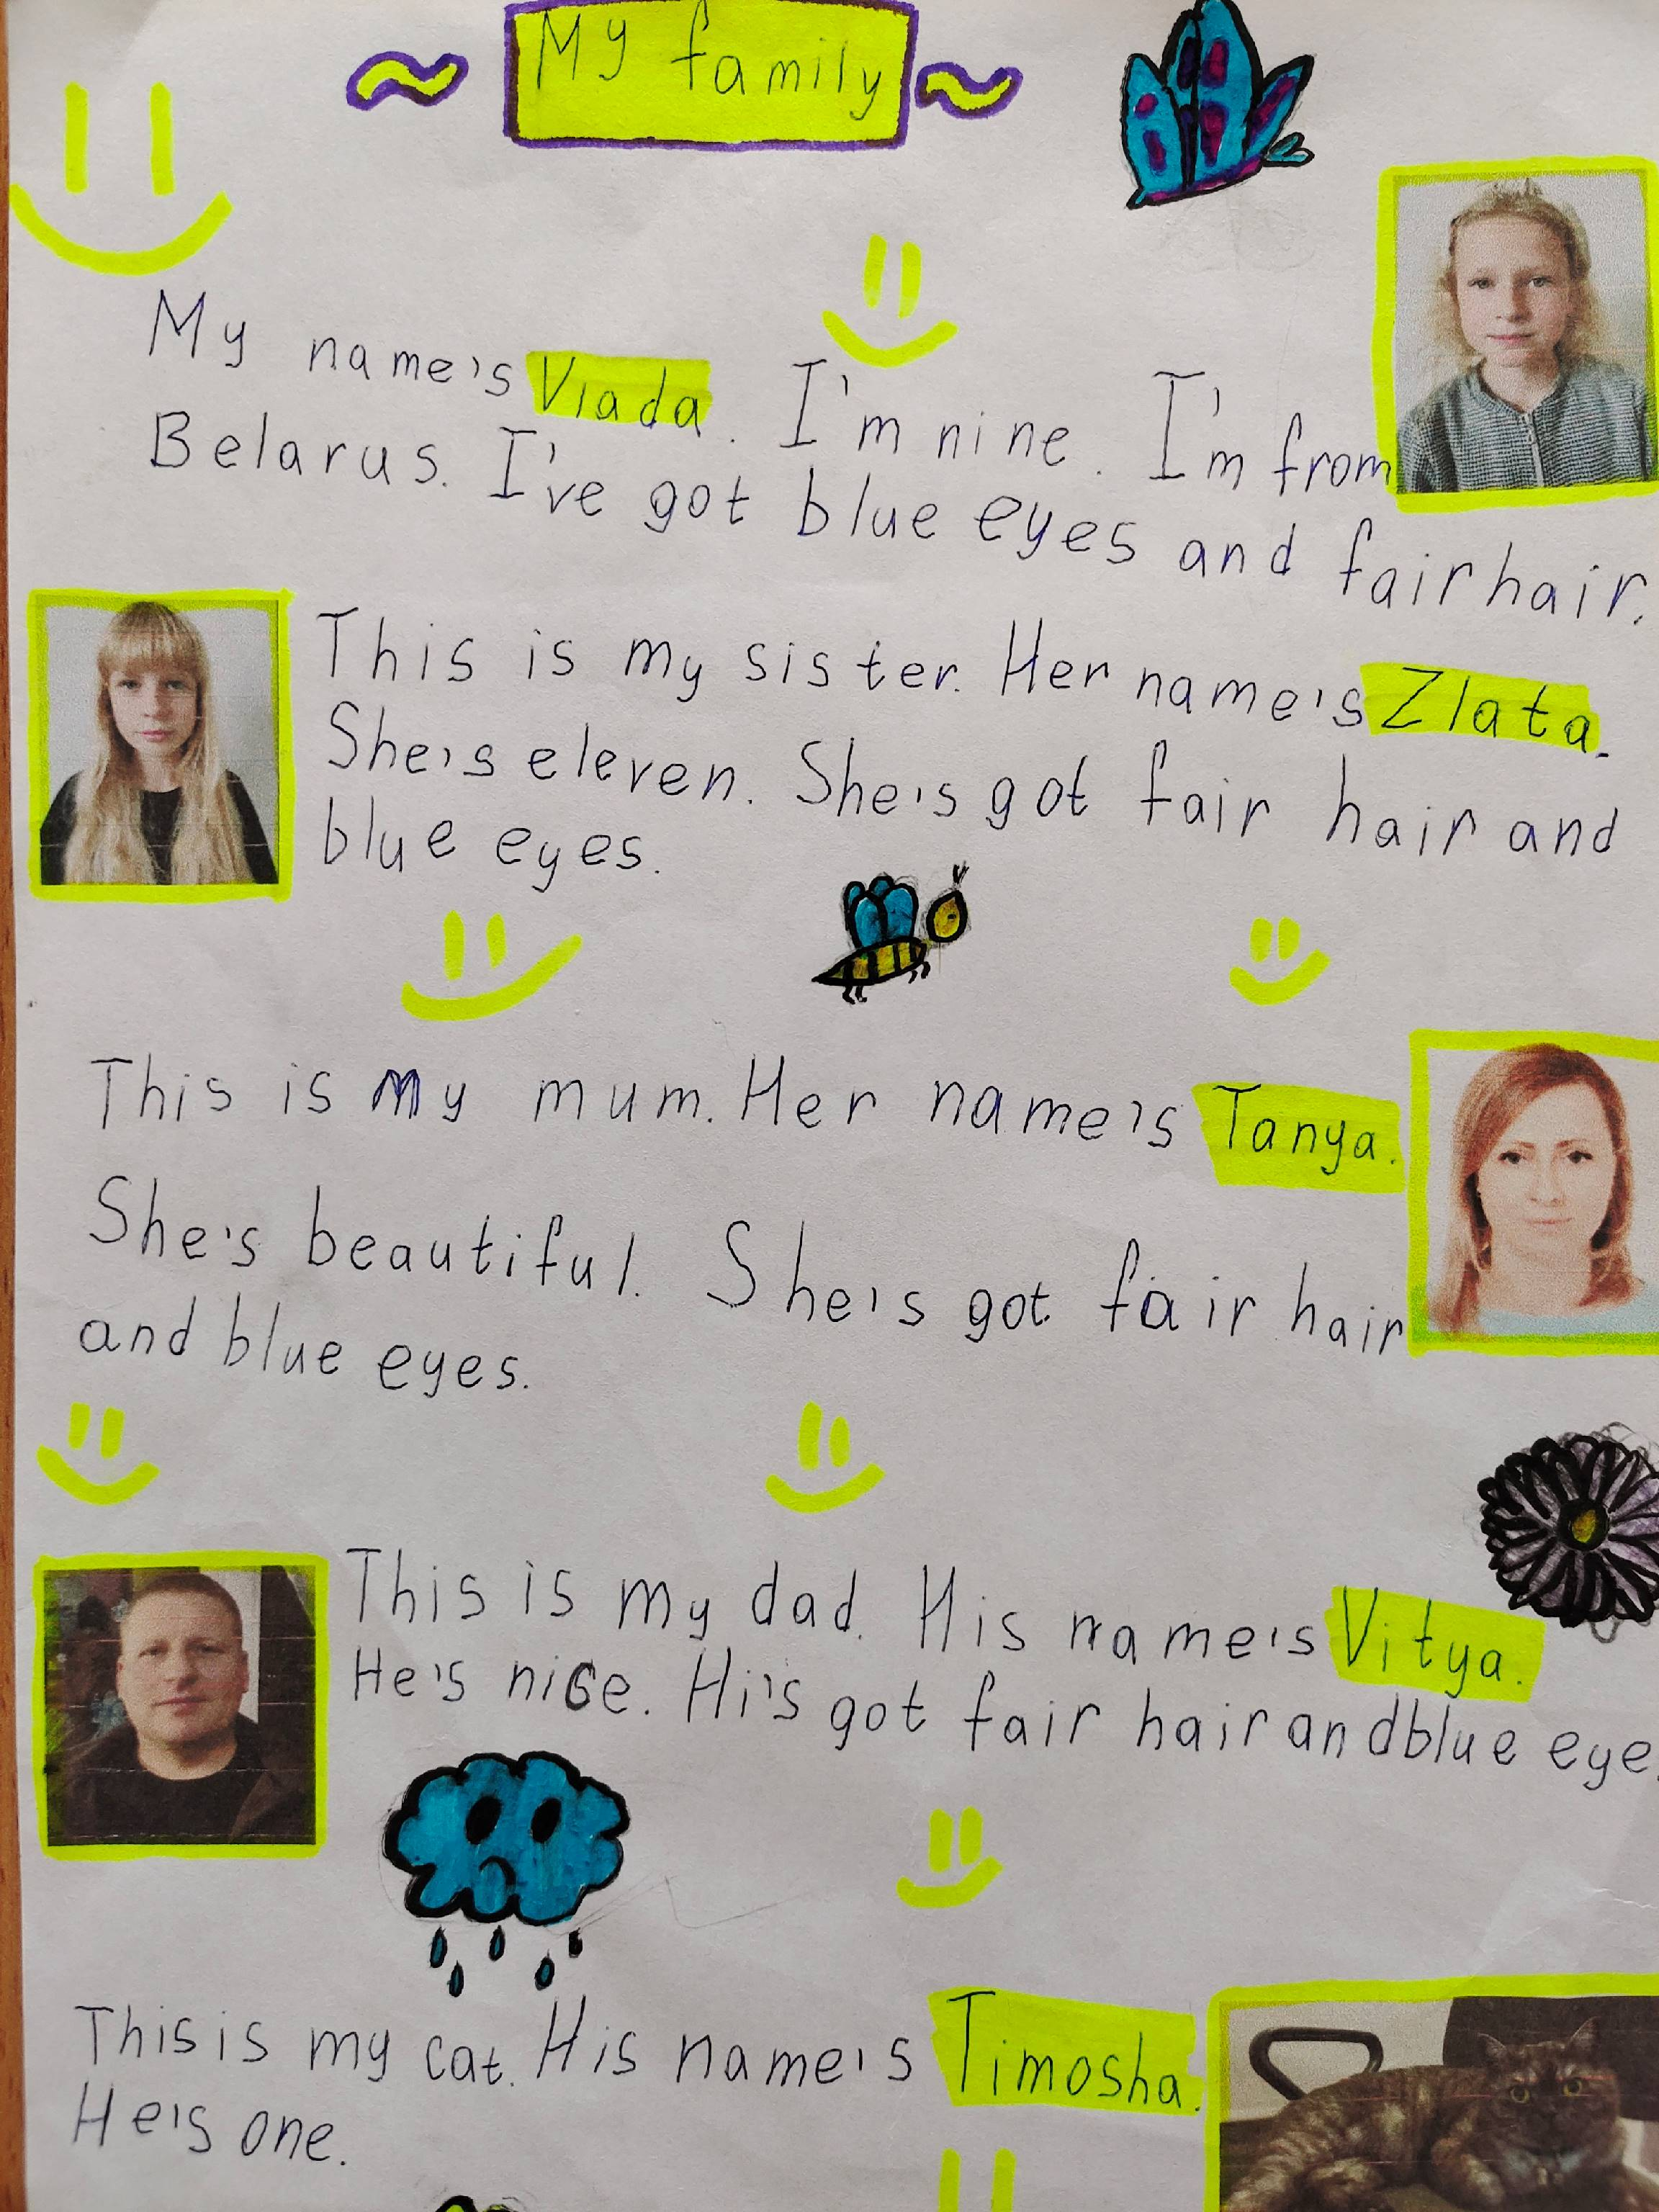 My family
My name's Vlada. I'm nine. I'm from
Belarus. I've got blue eyes and fair hair.
This is my sister. Her name's Zlata.
She's eleven. She's got fair hair and
blue eyes.
This is my mum. Her name's Tanya.
She's beautiful. She's got fair hair
and blue eyes.
This is my dad. His name's Vitya.
He's nice. Hi's got fair hair and blue eye
This is my cat. His name's Timosha.
He's one.